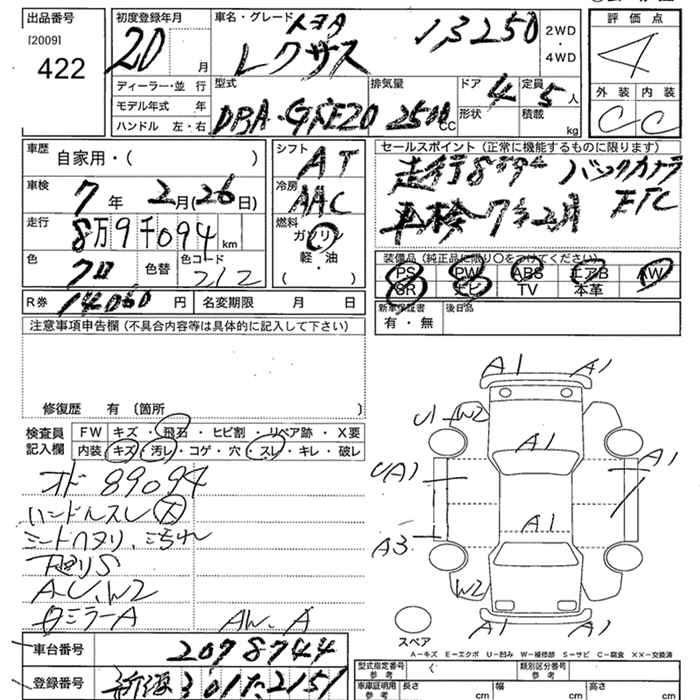 出品番号
[2009]
422
初度登録年月
20 月
車名・グレード
トヨタ
レクサス
IS250
2WD
・
4WD
評価点
4
外装 内装
C C
ディーラー・並行
モデル年式 年
ハンドル 左・右
型式
DBA・GSE20
排気量
2500 CC
ドア 4
形状
定員 5 人
積載 kg
車歴
自家用・( )
車検
7年 2月(26日)
走行
8万9千094 km
色
クロ
色替
色コード
212
R券 14060 円
名変期限 月 日
シフト
AT
冷房
AAC
燃料
ガソリン
軽・油
( )
セールスポイント(正常に機能するものに限ります)
走行8万9千 バックカメラ
車検7年2月 ETC
装備品(純正品に限り○をつけてください)
PS PW ABS エアB AW
SR ナビ TV 本革
新車保証書
有・無
後日品
注意事項申告欄(不具合内容等は具体的に記入して下さい)
修復歴 有 〔箇所 〕
検査員
記入欄
FW キズ・飛石・ヒビ割・リペア跡・X要
内装 キズ・汚レ・コゲ・穴・スレ・キレ・破レ
オド 89094
ハンドルスレ(大)
シートヘタリ、汚れ
下廻りS
A、U、W2
ミラーA
AW、A
A1 A1
U1 W2
A1
UA1 A1
A3 A1
W2
A1 A1
スペア
A−キズ E−エクボ U−凹み W−補修跡 S−サビ C−腐食 XX−交換済
車台番号 2078744
登録番号
型式指定番号
参考
類別区分番号
参考
車庫証明用
参考
長さ cm
幅 cm
高さ cm